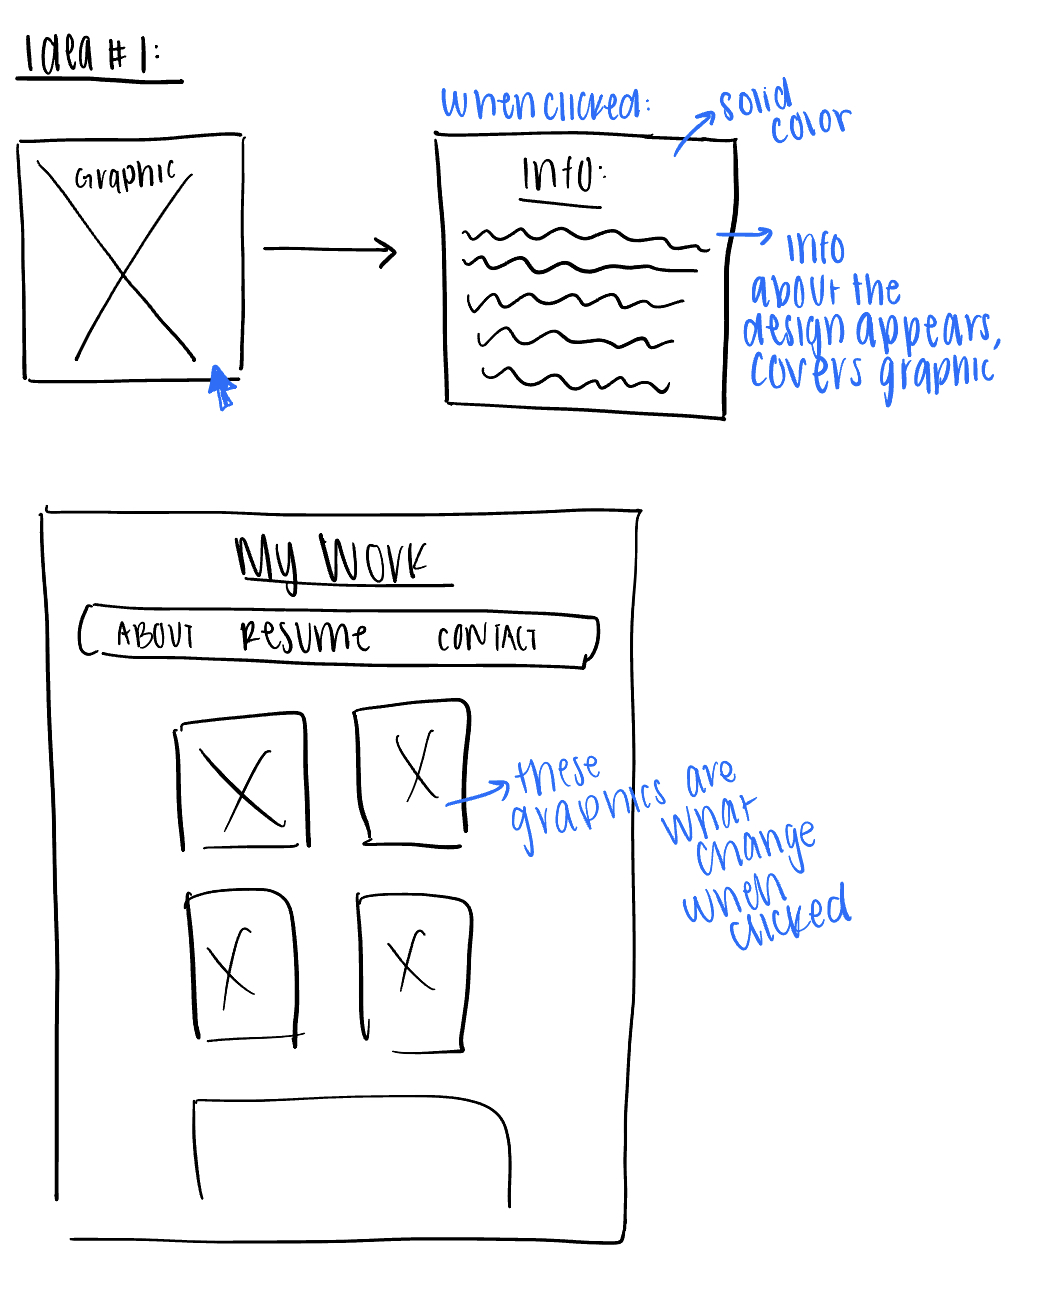 Idea #1:
when clicked:
solid
color
Graphic
Info:
info
about the
design appears,
covers graphic
My Work
ABOUT RESUME CONTACT
these
graphics are
what
change
when
clicked